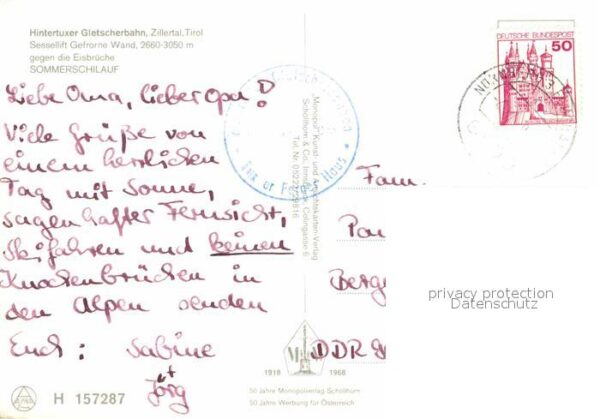 Hintertuxer Gletscherbahn, Zillertal, Tirol
Sessellift Gefrorne Wand, 2660-3050 m
gegen die Eisbrüche
SOMMERSCHILAUF
Liebe Oma, lieber Opa!
Viele Grüße von
einem herrlichen
Tag mit Sonne,
sagenhafter Fernsicht,
Skifahren und keinen
Knochenbrüchen in
den Alpen senden
Euch: Sabine
+
Jörg
H 157287
"Monopol" Kunst- und Ansichtskarten-Verlag
Schöllhorn & Co. Innsbruck,
Tel. Nr.
1918 1968
50 Jahre Monopolverlag Schöllhorn
50 Jahre Werbung für Österreich
DEUTSCHE BUNDESPOST
50
NÜRNBERG
Fam.
DDR
privacy protection
Datenschutz